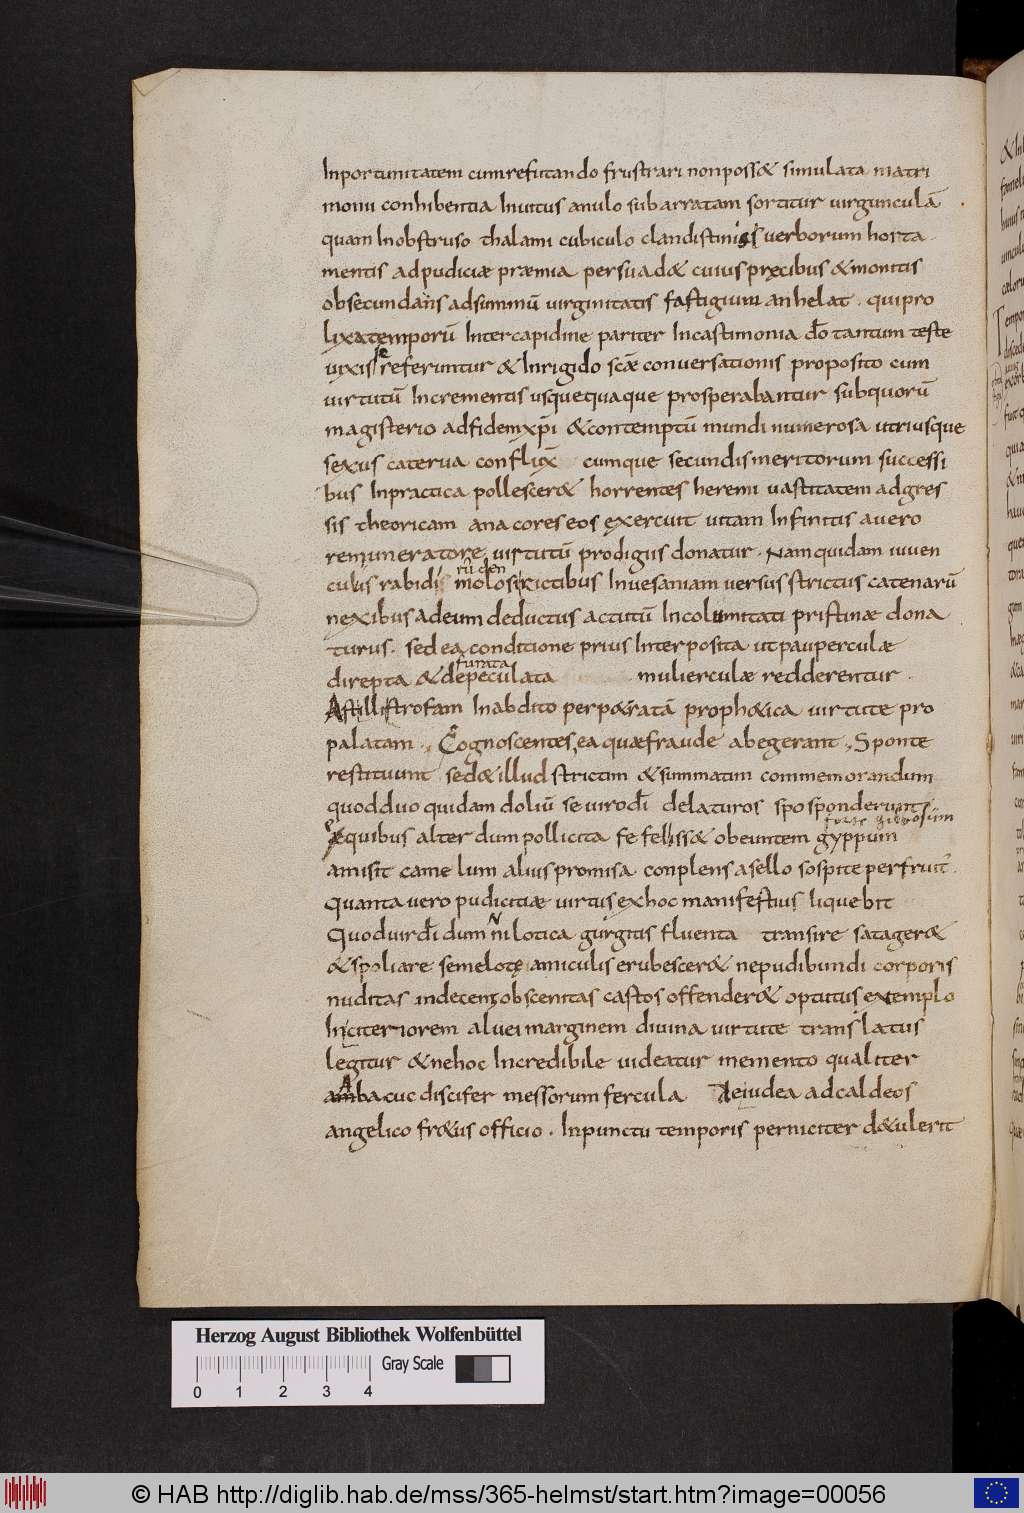 Inportunitatem cum refutando frustrari non possæ simulata matri
monii conhibentia Invitus anulo subarratam sortitur virgunculā
quam In obstruso thalami cubiculo clandistinis verborum horta
mentis ad pudiciæ præmia persuadæ cuius pręcibus & monitis
obsecundans ad summū virginitatis fastigium anhelat . qui pro
lixa temporū Intercapidine pariter In castimonia dō tantum teste
vixisse referuntur & In rigido scæ conversationis proposito cum
virtutū Incrementis usquequaque prosperabantur sub quorū
magisterio ad fidem xp̄i & contemptū mundi numerosa utriusque
sexus caterva conflux̄ cumque secundis meritorum successi
bus In practica pollesceræ horrentes heremi vastitatem adgres
sis theoricam anacoreseos exercuit vitam Infinitis a vero
remuneratore virtutū prodigiis donatur . Nam quidam iuven
rū den
culus rabidis molossi rictibus In vesaniam versus strictus catenarū
nexibus ad eum deductus actutū Incolumitati pristinæ dona
turus . sed ea conditione prius Interposita ut pauperculæ
furata
direpta & depeculata mulierculæ redderentur .
Ast illi strofam In abdito perpætratā prophætica virtute pro
palatam . Cognoscentes ea quæ fraude abegerant , Sponte
restituunt sed & illud strictim & summatim commemorandum
quod duo quidam doliū se viro dī delaturos spo sponderunt
forte gibbosum
Equibus alter dum pollicita fefelissæ obeuntem gyppum
amisit camelum alius promisa conplens asello sospite perfruit̄ .
Quanta vero pudicitiæ virtus ex hoc manifestius liquebit
Quod vir dī dum nilotica gurgitis fluenta transire satageræ
& spoliare se melotę amiculis erubesceræ ne pudibundi corporis
nuditas indecens obscenitas castos offenderæ optitus extemplo
In citeriorem alvei marginem divina virtute translatus
legitur & ne hoc Incredibile videatur memento qualiter
ambacuc discifer messorum fercula de iudea ad caldeos
angelico frætus officio . In punctu temporis perniciter dætulerit
Herzog August Bibliothek Wolfenbüttel
Gray Scale
0 1 2 3 4
© HAB http://diglib.hab.de/mss/365-helmst/start.htm?image=00056